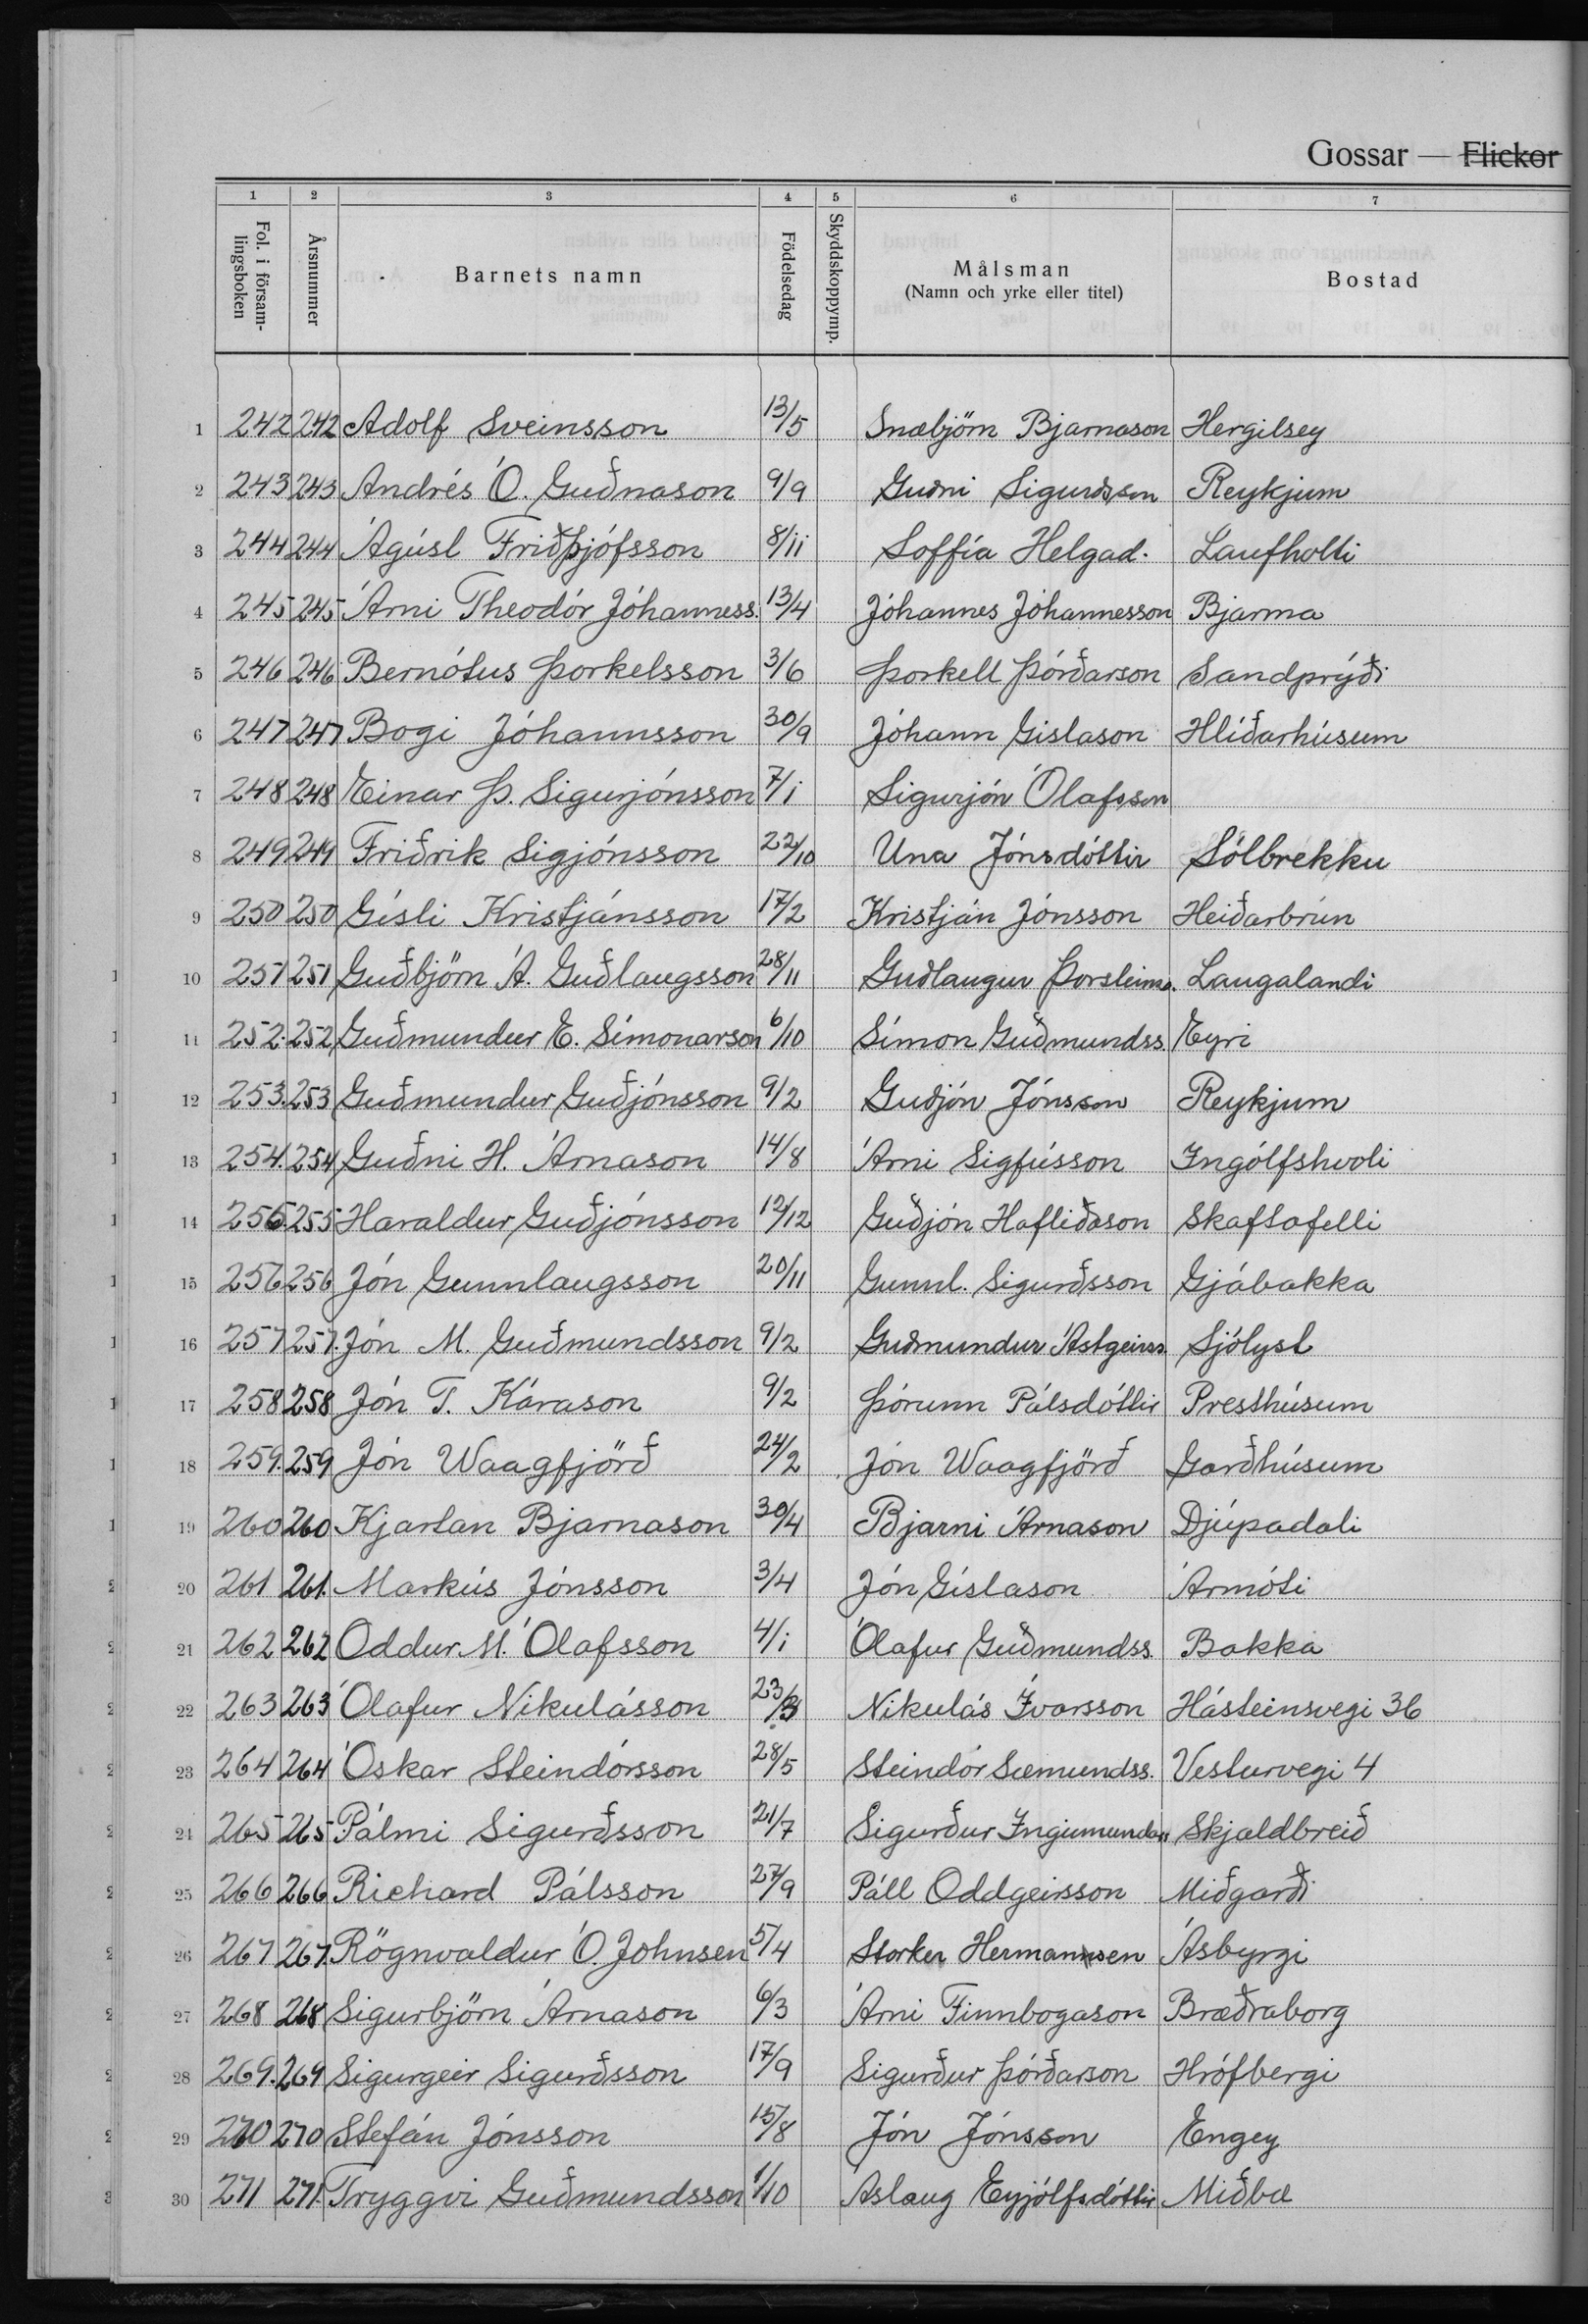 Gossar — Flickor
1 2 3 4 5 6 7
Fol. i församlingsboken Årsnummer Barnets namn Födelsedag Skyddskoppymp. Målsman (Namn och yrke eller titel) Bostad
1 242 242 Adolf Sveinsson 13/5 Snæbjörn Bjarnason Hergilsey
2 243 243 Andrés Ó. Guðnason 9/9 Guðni Sigurðsson Reykjum
3 244 244 Ágúst Friðþjófsson 8/11 Soffía Helgad. Laufholti
4 245 245 Árni Theodór Jóhanness. 13/4 Jóhannes Jóhannesson Bjarma
5 246 246 Bernótus Þorkelsson 3/6 Þorkell Þórðarson Sandprýði
6 247 247 Bogi Jóhannsson 30/9 Jóhann Gíslason Hlíðarhúsum
7 248 248 Einar Þ. Sigurjónsson 7/1 Sigurjón Ólafsson
8 249 249 Friðrik Sigjónsson 22/10 Una Jónsdóttir Sólbrekku
9 250 250 Gísli Kristjánsson 17/2 Kristján Jónsson Heiðarbrún
10 251 251 Guðbjörn Á. Guðlaugsson 28/11 Guðlaugur Þorsteinss. Laugalandi
11 252. 252 Guðmundur E. Símonarson 6/10 Símon Guðmundss. Eyri
12 253. 253 Guðmundur Guðjónsson 9/2 Guðjón Jónsson Reykjum
13 254. 254 Guðni H. Árnason 14/8 Árni Sigfússon Ingólfshvoli
14 255. 255 Haraldur Guðjónsson 12/12 Guðjón Hafliðason Skaftafelli
15 256 256 Jón Gunnlaugsson 20/11 Gunnl. Sigurðsson Gjábakka
16 257 257. Jón M. Guðmundsson 9/2 Guðmundur Ástgeirss. Sjólyst
17 258 258 Jón T. Kárason 9/2 Þórunn Pálsdóttir Presthúsum
18 259. 259 Jón Waagfjörð 24/2 Jón Waagfjörð Garðhúsum
19 260 260 Kjartan Bjarnason 30/4 Bjarni Árnason Djúpadali
20 261 261. Markús Jónsson 3/4 Jón Gíslason Ármóti
21 262 262 Oddur M. Ólafsson 4/1 Ólafur Guðmundss. Bakka
22 263 263 Ólafur Nikulásson 23/3 Nikulás Ívarsson Hásteinsvegi 36
23 264 264 Óskar Steindórsson 28/5 Steindór Sæmundss. Vesturvegi 4
24 265 265 Pálmi Sigurðsson 21/7 Sigurður Ingimundars Skjaldbreið
25 266 266 Richard Pálsson 27/9 Páll Oddgeirsson Miðgarði
26 267 267. Rögnvaldur Ó. Johnsen 5/4 Storker Hermannsen Ásbyrgi
27 268 268 Sigurbjörn Árnason 6/3 Árni Finnbogason Bræðraborg
28 269. 269 Sigurgeir Sigurðsson 17/9 Sigurður Þórðarson Hrófbergi
29 270 270 Stefán Jónsson 15/8 Jón Jónsson Engey
30 271 271. Tryggvi Guðmundsson 1/10 Áslaug Eyjólfsdóttir Miðbæ